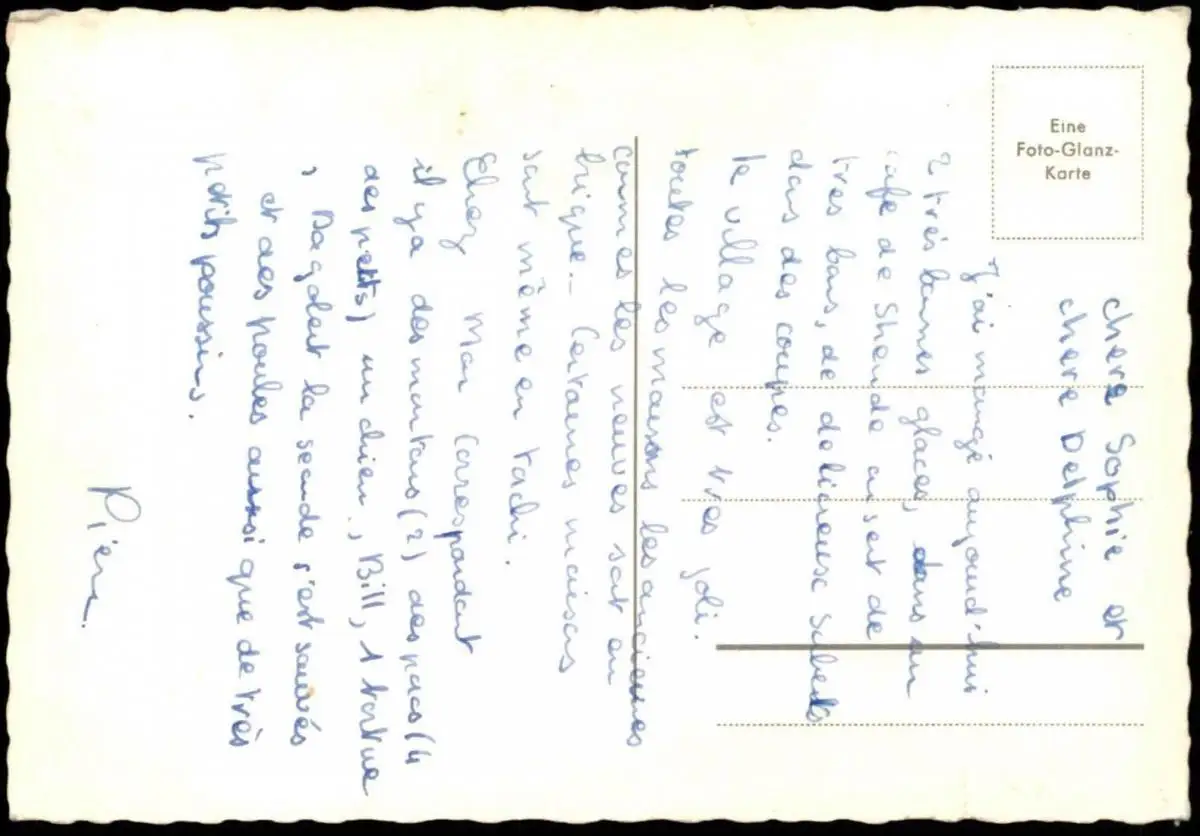 Eine
Foto-Glanz-
Karte
chere Sophie et
chere Delphine
J'ai mangé aujourd'hui
2 très bonnes glaces, dans un
cafe de Stende ausert de
tres bons, de delicieuse subets
dans des coupes.
te village est tres joli.
toutes les maisons les anciennes
comme les neuves sont en
brique - Certaines maisons
sont même en torchi.
Chez Mon Correspondant
il y a des moutons (2) des paos (4
des petits) un chien, Bill, 1 tortue
, Dagobert la seconde s'est sauvés
et des poules aussi que de très
petits poussins.
Pierre.